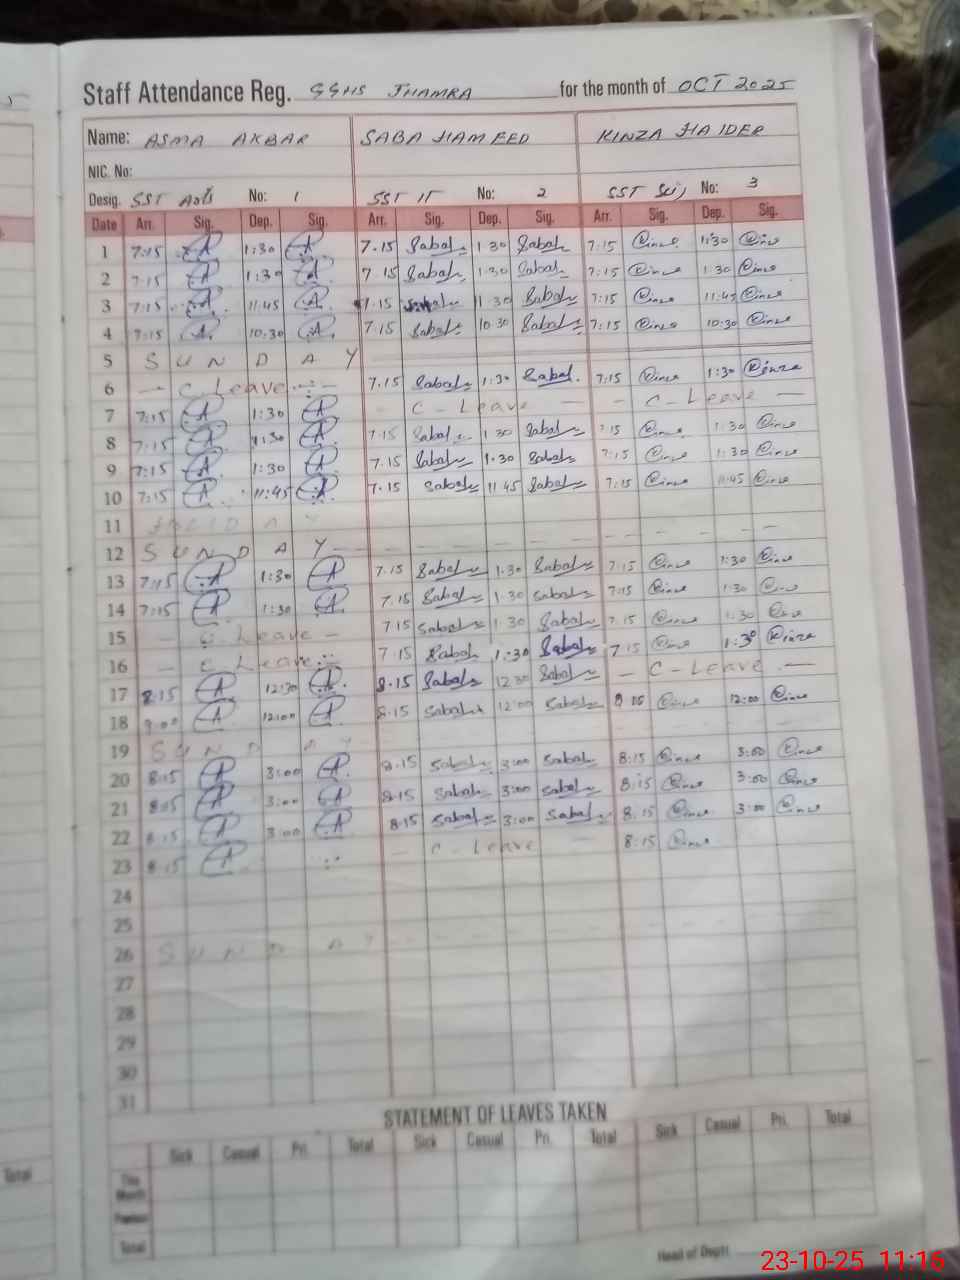 Staff Attendance Reg. GGHS JHAMRA for the month of OCT 2025
Name: ASMA AKBAR SABA HAMEED KINZA HAIDER
NIC. No:
Desig. SST Arts No: 1 SST IT No: 2 SST Sci No: 3
Date Arr. Sig. Dep. Sig. Arr. Sig. Dep. Sig. Arr. Sig. Dep. Sig.
1 7:15 A 1:30 A 7.15 Sabah 1 30 Sabah 7:15 1:30
2 7:15 A 1:30 A 7 15 Sabah 1:30 Sabah 7:15 1 30
3 7:15 A 11:45 A 7.15 Sabah 11 30 Sabah 7:15 11:45
4 7:15 A 10:30 A 7.15 Sabah 10 30 Sabah 7:15 10:30
5 S U N D A Y
6 — C Leave — 7.15 Sabah 1:30 Sabah. 7:15 1:30 Kinza
7 7:15 A 1:30 A - C - Leave — - C - Leave —
8 7:15 A 1:30 A 7.15 Sabah 1 30 Sabah 7:15 1 30
9 7:15 A 1:30 A 7.15 Sabah 1.30 Sabah 7:15 1:30
10 7:15 A 11:45 A 7.15 Sabah 11 45 Sabah 7:15 11:45
11 H O L I D A Y
12 S U N D A Y
13 7:15 A 1:30 A 7.15 Sabah 1.30 Sabah 7:15 1:30
14 7:15 A 1:30 A 7.15 Sabah 1.30 Sabah 7:15 1:30
15 - C Leave - 7 15 Sabah 1 30 Sabah 7.15 1:30
16 - C Leave 7 15 Sabah 1:30 Sabah 7 15 1:30 Kinza
17 8:15 A 12:30 A 8.15 Sabah 12 30 Sabah - C - Leave —
18 9:00 A 12:00 A 8.15 Sabah 12:00 Sabah 8 15 12:00
19 S U N D A Y
20 8:15 A 3:00 A 8.15 Sabah 3:00 Sabah 8:15 3:00
21 8:15 A 3:00 A 8.15 Sabah 3:00 Sabah 8:15 3:00
22 8:15 A 3:00 A 8.15 Sabah 3:00 Sabah 8:15 3:00
23 8:15 A - C - Leave - 8:15
24
25
26 S U N D A Y
27
28
29
30
31
STATEMENT OF LEAVES TAKEN
Sick Casual Pri. Total Sick Casual Pri. Total Sick Casual Pri. Total
This Month
Previous
Total
Total
Head of Deptt
23-10-25 11:16